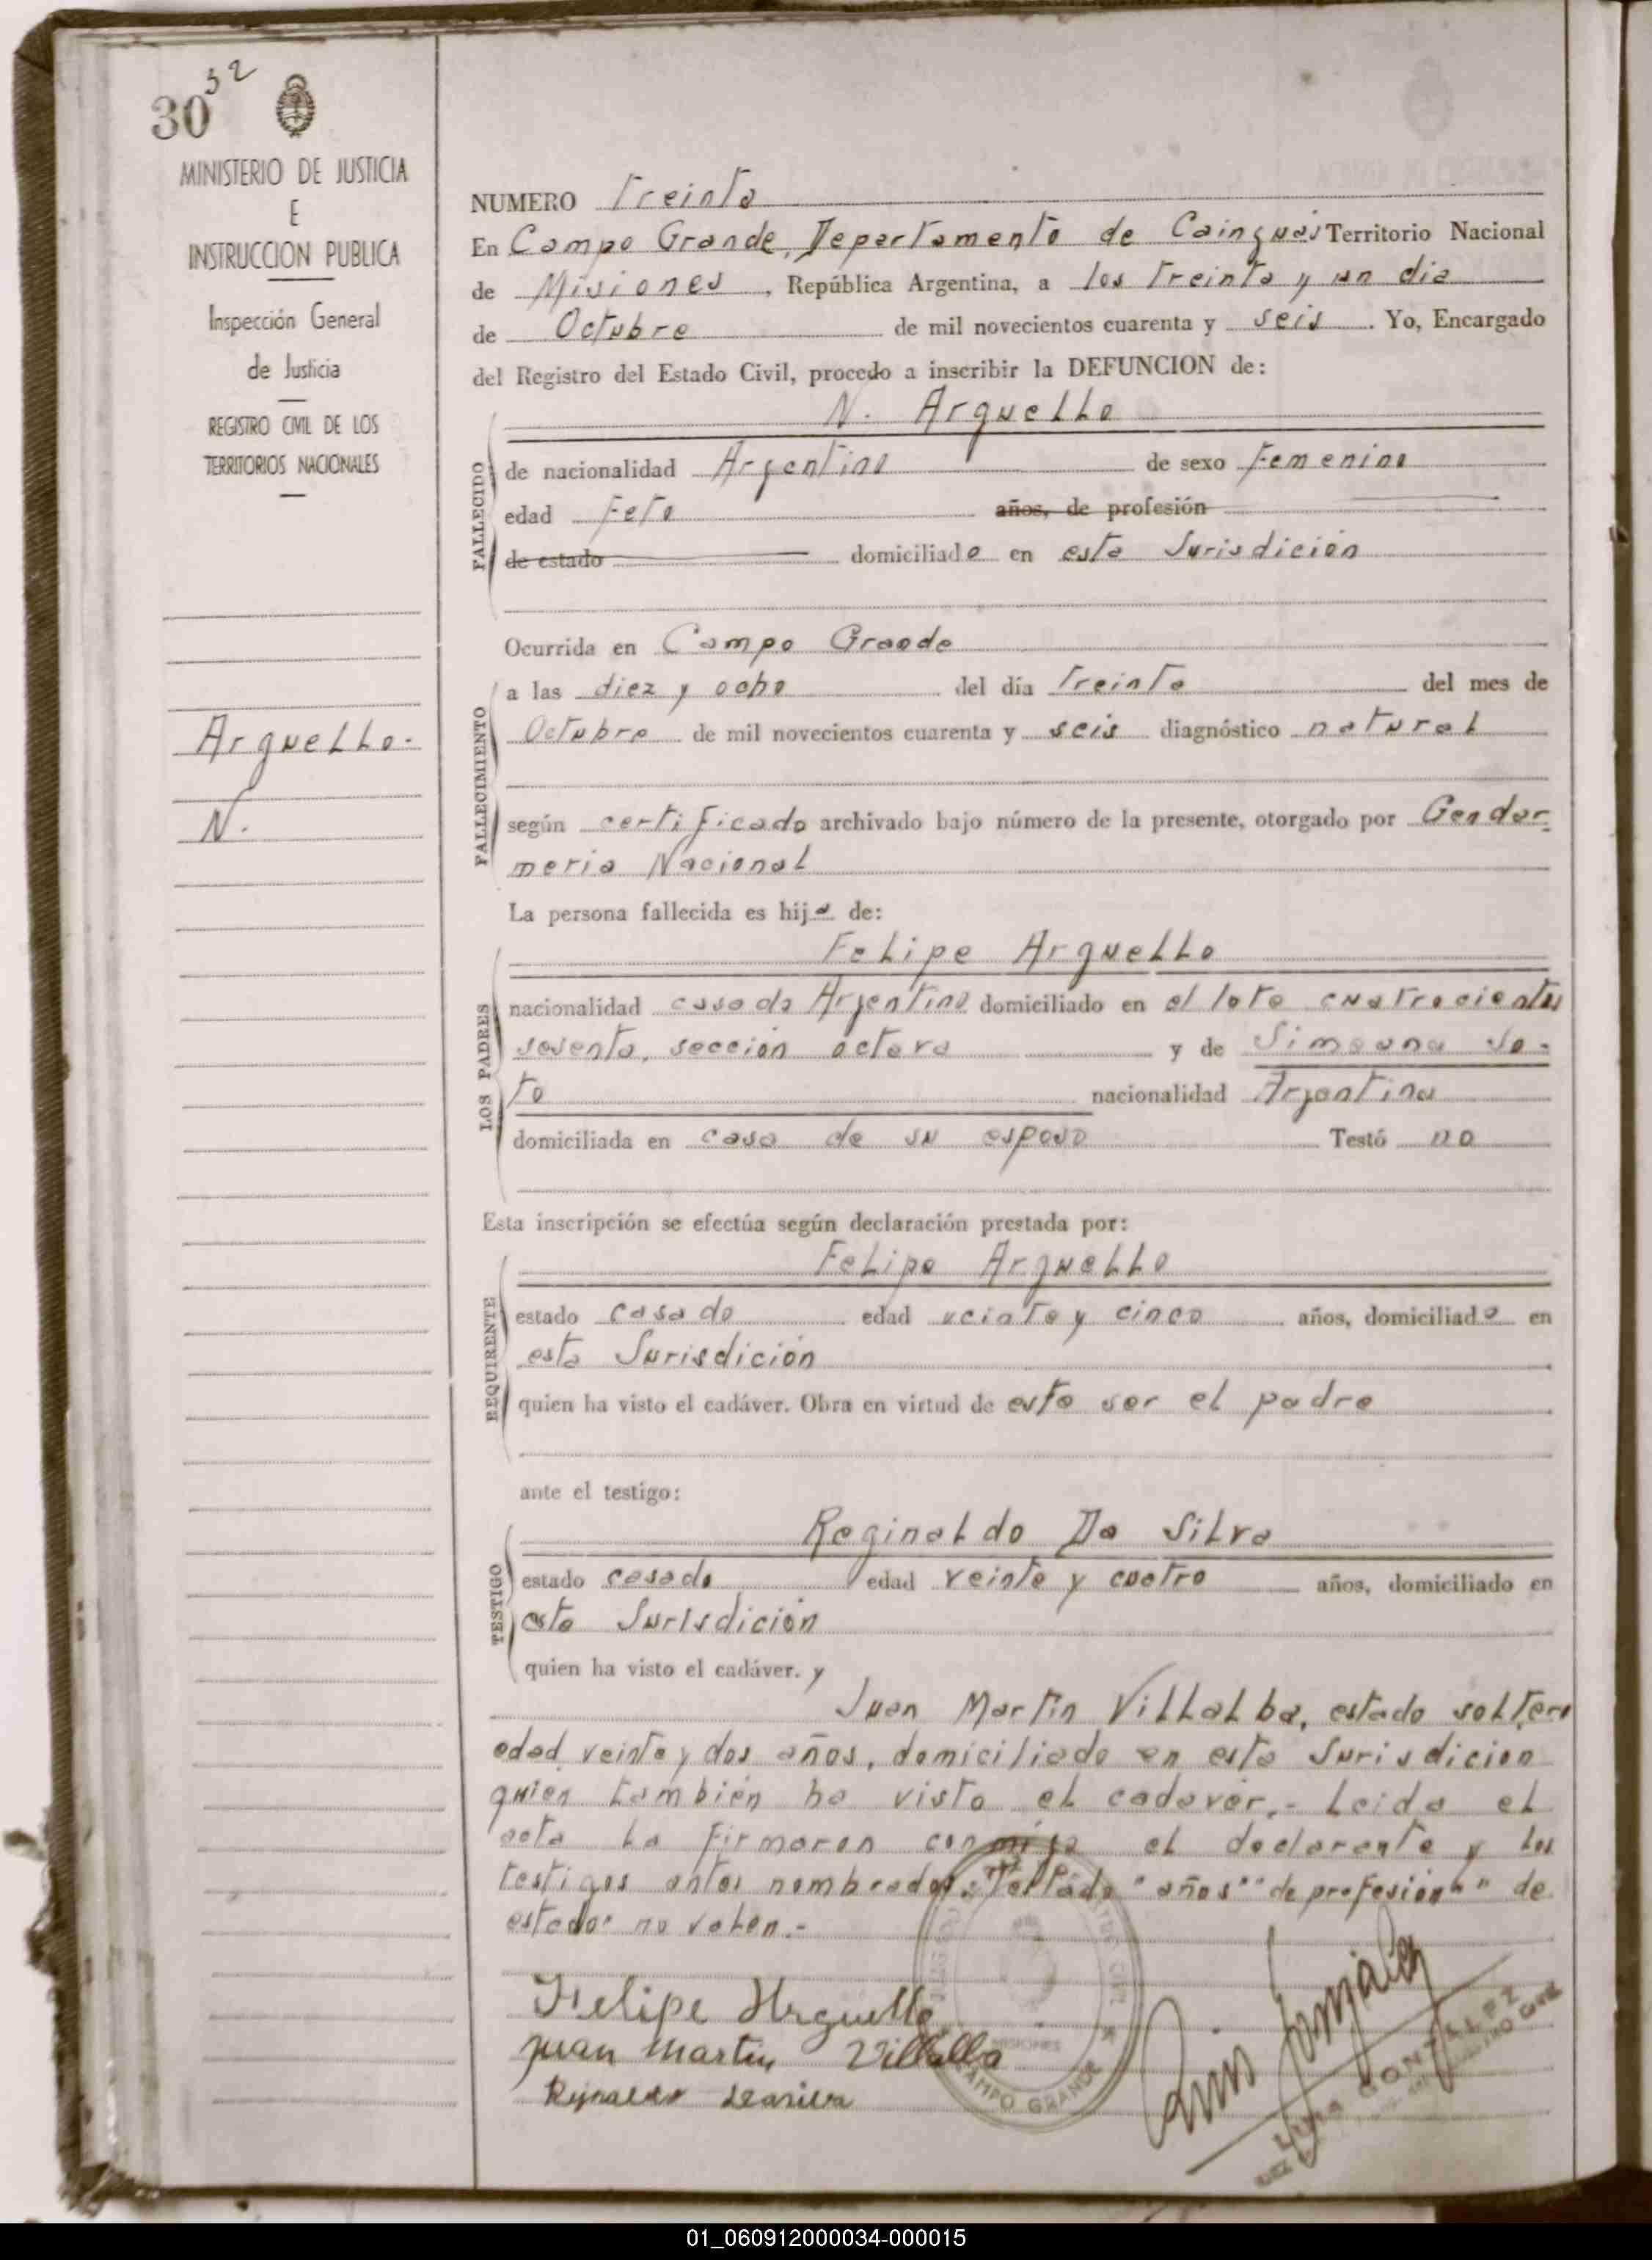 30 32
MINISTERIO DE JUSTICIA
E
INSTRUCCION PUBLICA
Inspección General
de Justicia
REGISTRO CIVIL DE LOS
TERRITORIOS NACIONALES
Arguello.
N.
NUMERO Treinta
En Campo Grande, Departamento de Cainguás Territorio Nacional
de Misiones, República Argentina, a los treinta y un dia
de Octubre de mil novecientos cuarenta y seis. Yo, Encargado
del Registro del Estado Civil, procedo a inscribir la DEFUNCION de:
N. Arguello
FALLECIDO
de nacionalidad Argentina de sexo Femenino
edad Feto años, de profesión
de estado domiciliada en esta Jurisdición
Ocurrida en Campo Grande
FALLECIMIENTO
a las diez y ocho del día treinta del mes de
Octubre de mil novecientos cuarenta y seis diagnóstico natural
según certificado archivado bajo número de la presente, otorgado por Gendar-
meria Nacional
La persona fallecida es hija de:
LOS PADRES
Felipe Arguello
nacionalidad casado Argentino domiciliado en el lote cuatrocientos
sesenta, sección octava y de Simeona So-
to nacionalidad Argentina
domiciliada en casa de su esposo Testó no
Esta inscripción se efectúa según declaración prestada por:
REQUIRENTE
Felipe Arguello
estado casado edad veinte y cinco años, domiciliado en
esta Jurisdición
quien ha visto el cadáver. Obra en virtud de este ser el padre
ante el testigo:
TESTIGO
Reginaldo Da Silva
estado casado edad veinte y cuatro años, domiciliado en
esta Jurisdición
quien ha visto el cadáver. y
Juan Martin Villalba, estado soltero
edad veinte y dos años, domiciliado en esta Jurisdicion
quien también ha visto el cadaver.- Leida el
acta la firmaron conmigo el declarante y los
testigos antes nombrados. Testado "años" "de profesión" "de
estado" no valen.-
Felipe Arguello
Juan Martin Villalba
MISIONES
CAMPO GRANDE
Luis Gonzalez
GONZALEZ
01_060912000034-000015